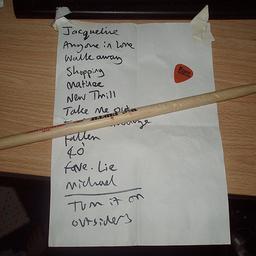 Jacqueline
Anyone in Love
Walk away
Shopping
Matinee
New Thrill
Take me
Fallen
40'
Fave. Lie
Michael
Turn it on
outsiders